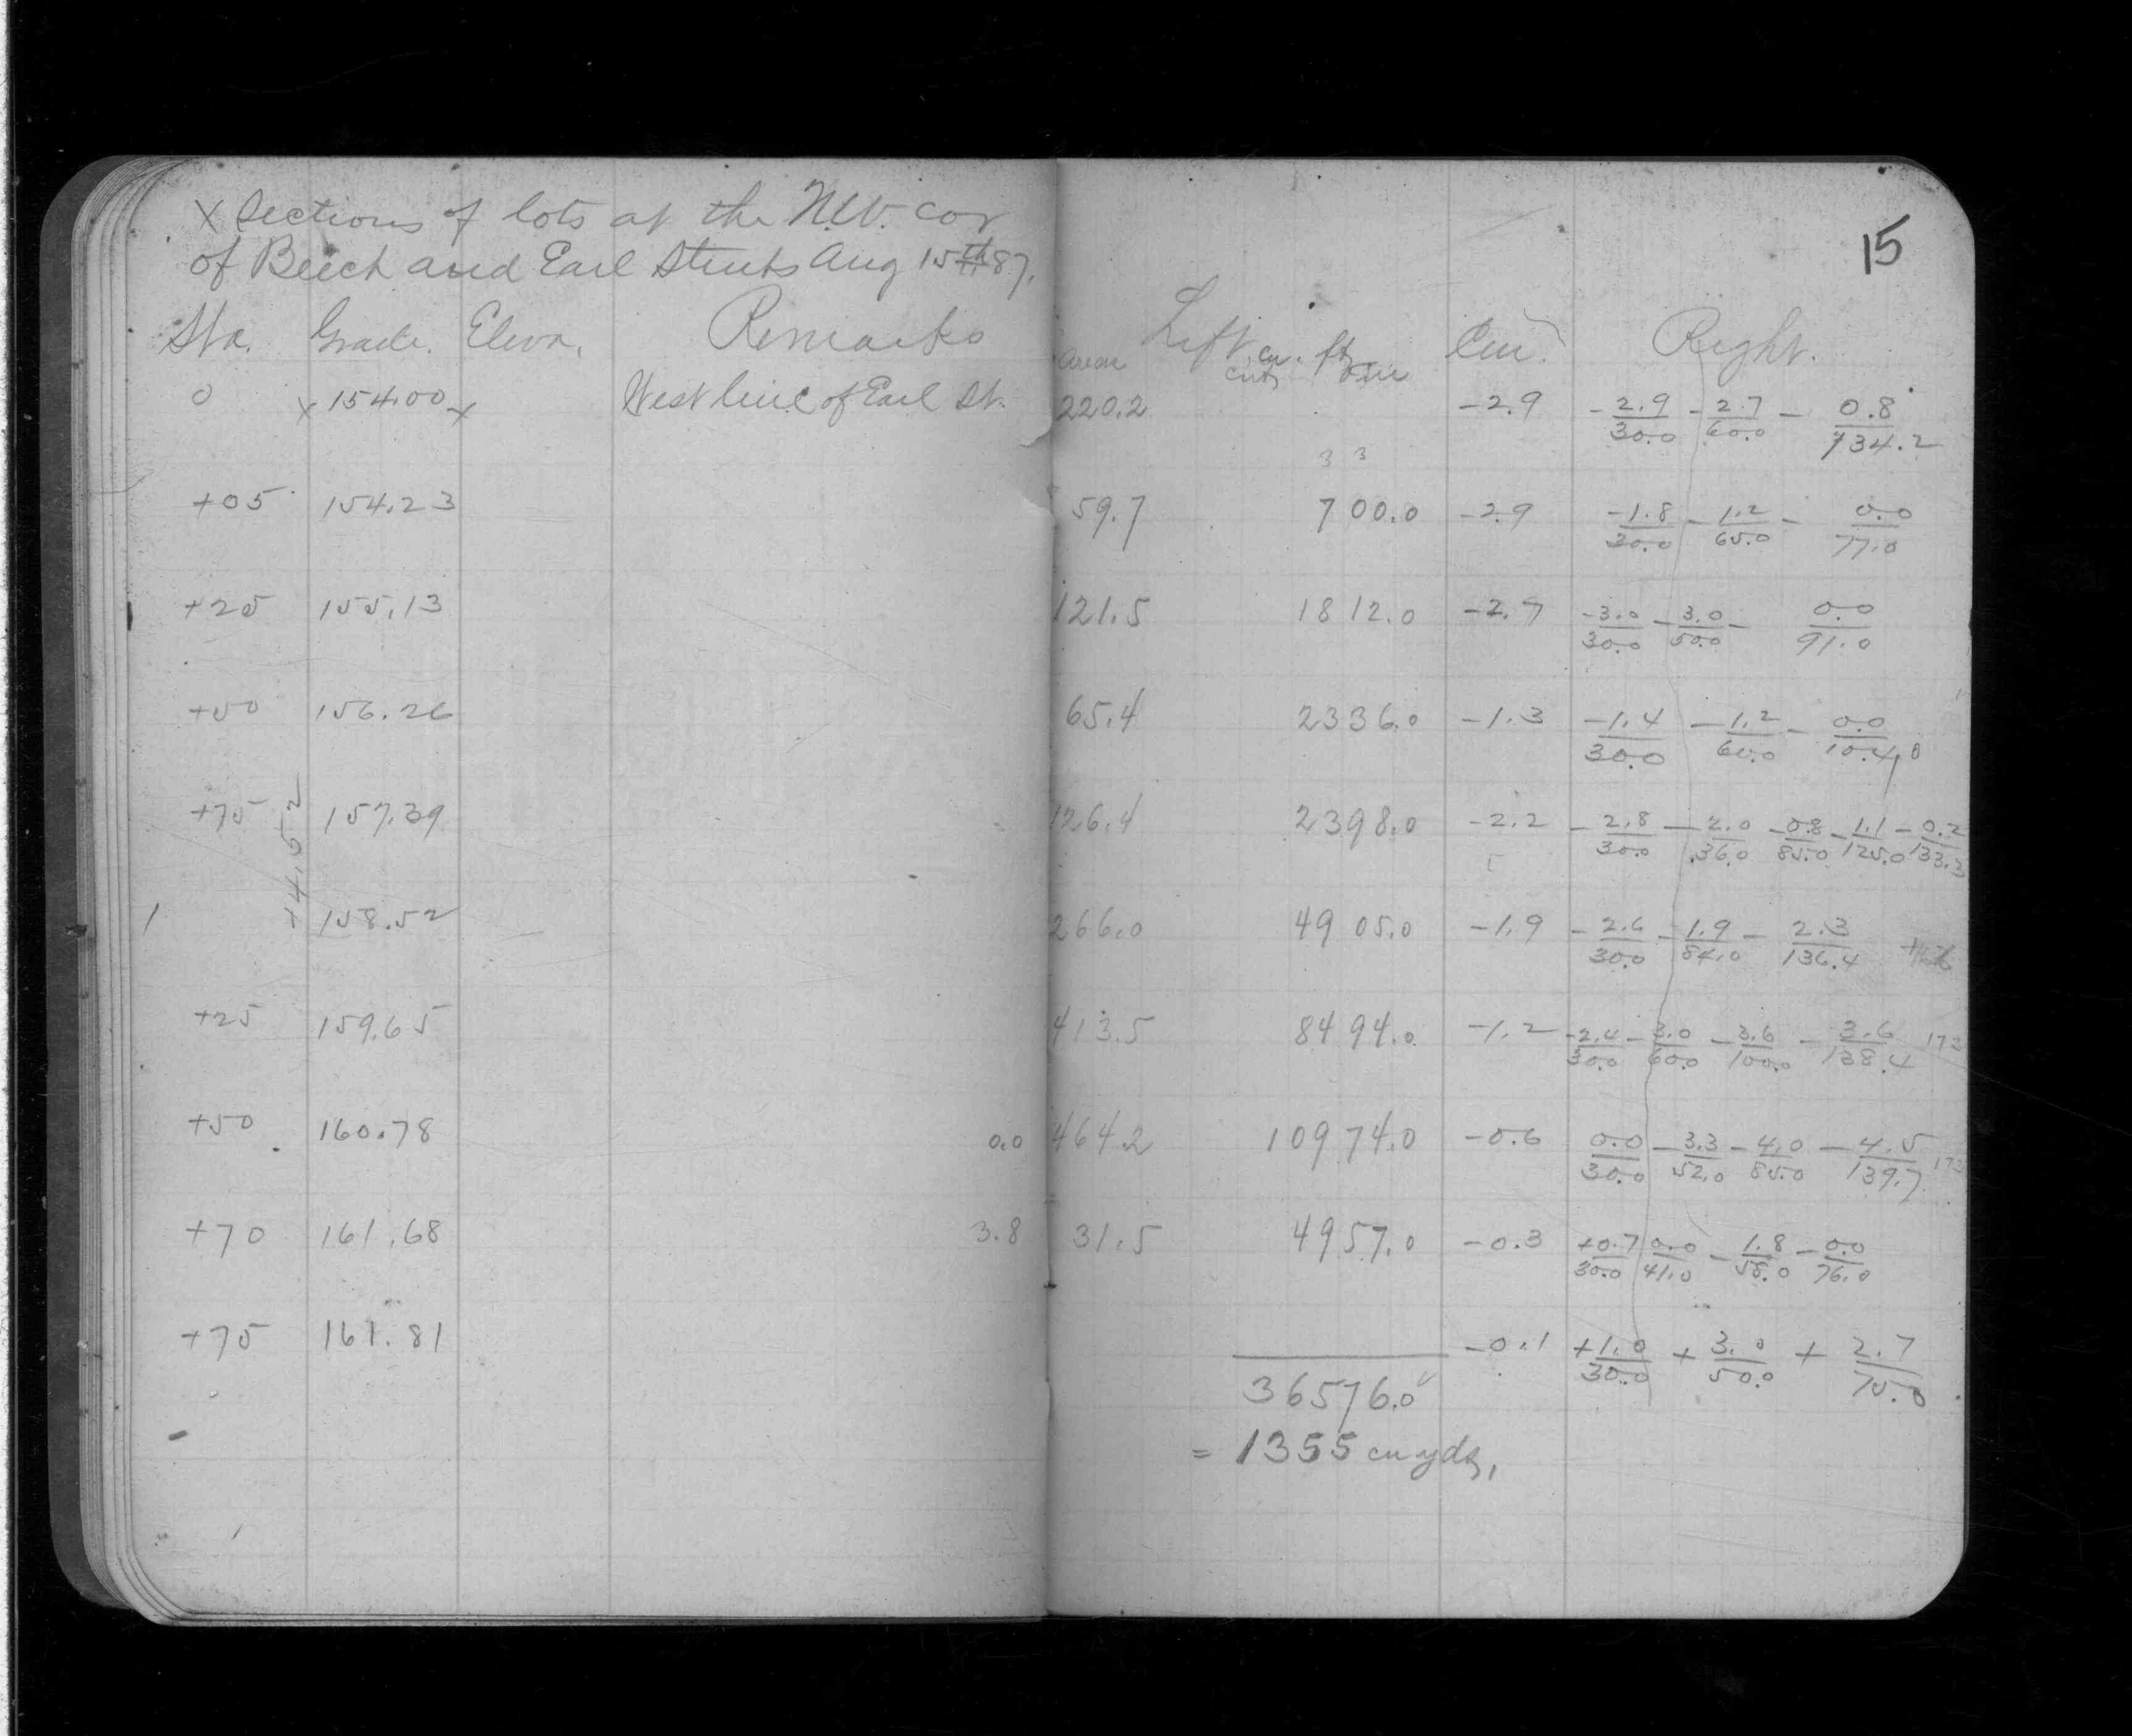 X Sections of lots at the N.W. cor
of Beech and Earl Streets Aug 15th 87.
15
Sta. Grade. Eleva. Remarks Left Cen. Right.
Areas cu. ft.
cuts
0 x 154.00 x West line of Earl St. 220.2 -2.9 -2.9/30.0 -2.7/60.0 - 0.8/134.2
3 3
+05 154.23 59.7 700.0 -2.9 -1.8/30.0 -1.2/65.0 - 0.0/77.0
+25 155.13 121.5 1812.0 -2.7 -3.0/30.0 -3.0/50.0 - 0.0/91.0
+50 156.26 65.4 2336.0 -1.3 -1.4/30.0 -1.2/60.0 - 0.0/104.0
+75 157.39 126.4 2398.0 -2.2 -2.8/30.0 -2.0/36.0 -0.8/85.0 -1.1/125.0 -0.2/133.3
+4.52
1 158.52 266.0 4905.0 -1.9 -2.6/30.0 -1.9/84.0 - 2.3/136.4
+25 159.65 413.5 8494.0 -1.2 -2.4/30.0 -3.0/60.0 -3.6/100.0 -3.6/138.4 172
+50 160.78 0.0 464.2 10974.0 -0.6 0.0/30.0 -3.3/52.0 -4.0/85.0 -4.5/139.7
+70 161.68 3.8 31.5 4957.0 -0.3 +0.7/30.0 0.0/41.0 -1.8/58.0 -0.0/76.0
+75 161.81 -0.1 +1.0/30.0 +3.0/50.0 + 2.7/75.0
36576.0
= 1355 cu yds,